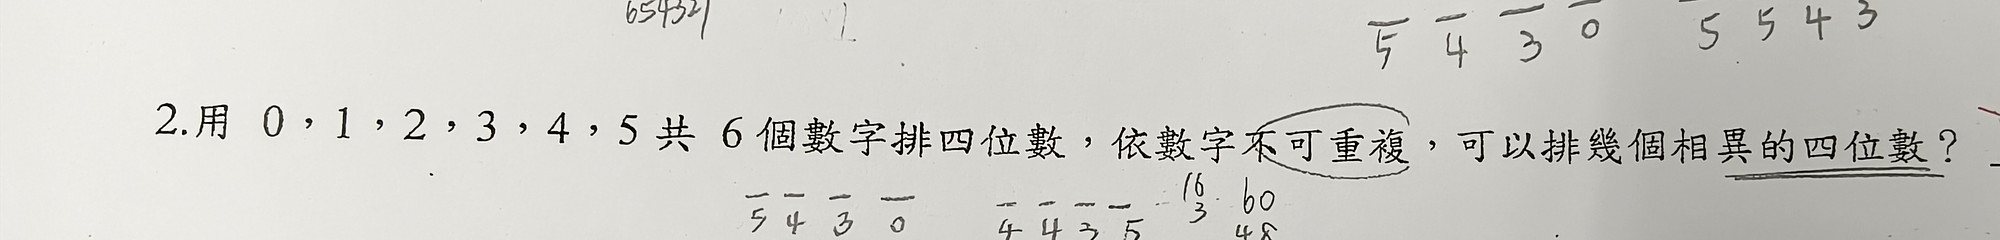 654321
5 4 3 0 5 5 4 3
2.用 0，1，2，3，4，5 共 6 個數字排四位數，依數字不可重複，可以排幾個相異的四位數？
5 4 3 0 4 4 3 5 16 60
3 48